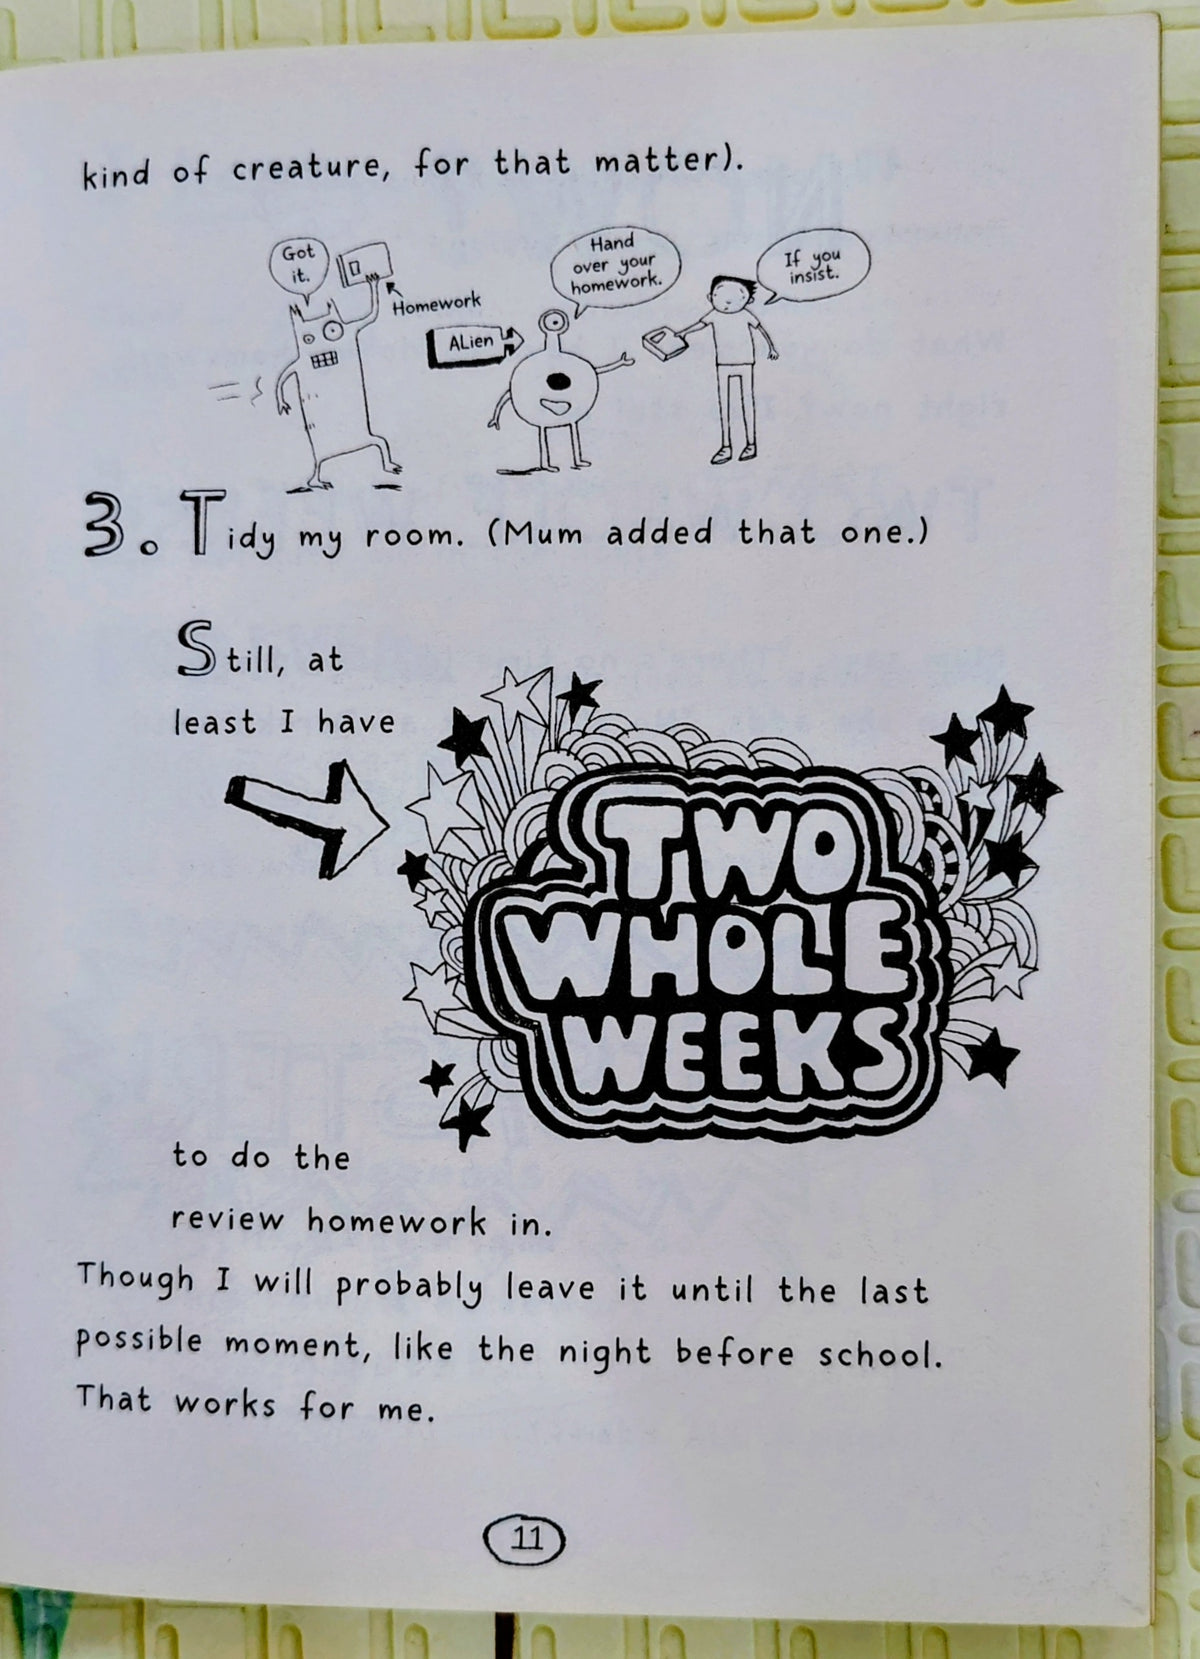 kind of creature, for that matter).
Got
it.
Homework
ALien
Hand
over your
homework.
If you
insist.
3. Tidy my room. (Mum added that one.)
Still, at
least I have
TWO
WHOLE
WEEKS
to do the
review homework in.
Though I will probably leave it until the last
possible moment, like the night before school.
That works for me.
11